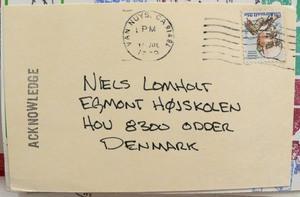 VAN NUYS, CA
PM
ACKNOWLEDGE
NIELS LOMHOLT
EGMONT HØJSKOLEN
HOU 8300 ODDER
DENMARK